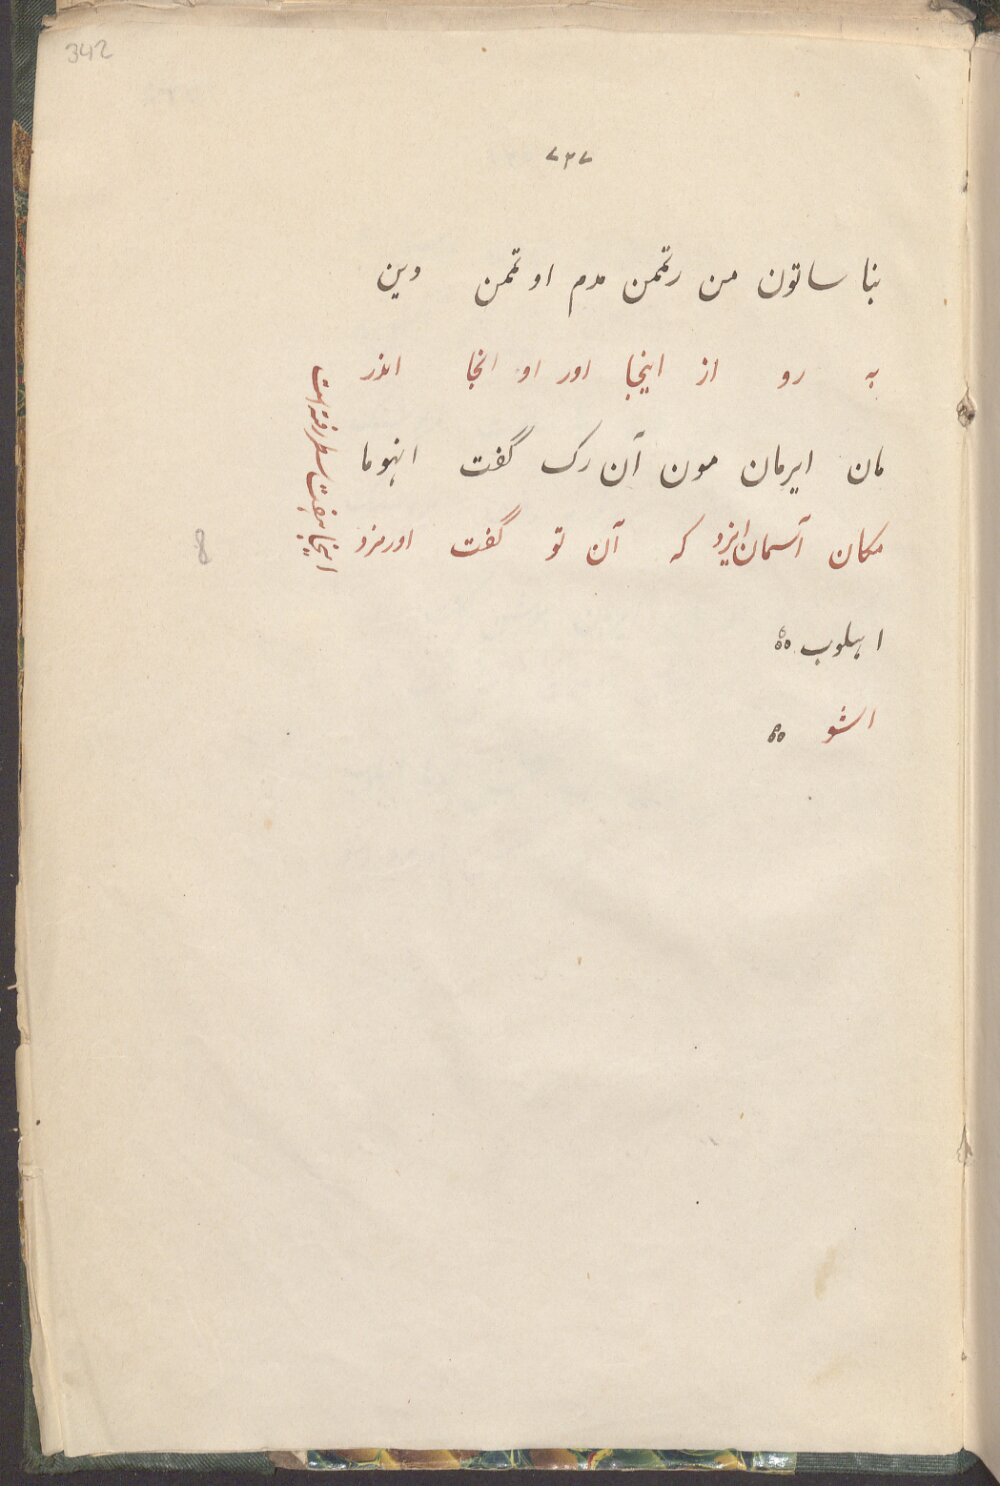 342
۷۳۷
بنا ساتون من رتمن مدم او تمن وین
به رو از اینجا اور او انجا اندر
مان ایرمان مون آن رک گفت انهوما
مکان آسمان ایزد که آن تو گفت اورمزد
اهلوب ஃ
اشو ஃ
اینجا هفت سطر رفته است
8